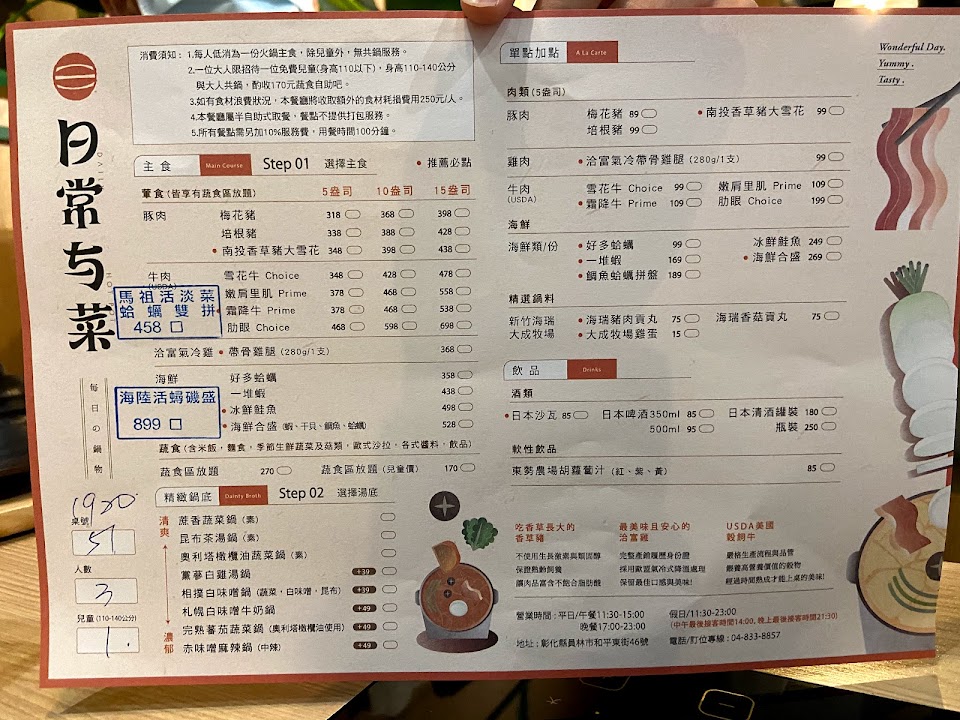 日常ち菜
每日の鍋物
消費須知：1.每人低消為一份火鍋主食，除兒童外，無共鍋服務。
2.一位大人限招待一位免費兒童(身高110以下)，身高110-140公分
與大人共鍋，酌收170元蔬食自助吧。
3.如有食材浪費狀況，本餐廳將收取額外的食材耗損費用250元/人。
4.本餐廳屬半自助式取餐，餐點不提供打包服務。
5.所有餐點需另加10%服務費，用餐時間100分鐘。
主食 Main Course Step 01 選擇主食 •推薦必點
葷食(皆享有蔬食區放題) 5盎司 10盎司 15盎司
豚肉 梅花豬 318 368 398
培根豬 338 388 428
•南投香草豬大雪花 348 398 438
牛肉 雪花牛 Choice 348 428 478
(USDA) 嫩肩里肌 Prime 378 468 538
•霜降牛 Prime 378 468 538
肋眼 Choice 468 598 698
馬祖活淡菜
蛤蠣雙拼
458口
洽富氣冷雞 •帶骨雞腿 (280g/1支) 368
海鮮 好多蛤蠣 358
一堆蝦 438
•冰鮮鮭魚 498
•海鮮合盛 (蝦、干貝、鯛魚、蛤蠣) 528
海陸活蟳磯盛
899口
蔬食(含米飯，麵食，季節生鮮蔬菜及菇類，歐式沙拉，各式醬料，飲品)
蔬食區放題 270 蔬食區放題 (兒童價) 170
精緻鍋底 Dainty Broth Step 02 選擇湯底
清爽
濃郁
蔗香蔬菜鍋 (素)
昆布茶湯鍋 (素)
奧利塔橄欖油蔬菜鍋 (素)
薰蔘白雞湯鍋 +39
相撲白味噌鍋 (蔬菜，白味噌，昆布) +39
札幌白味噌牛奶鍋 +49
完熟蕃茄蔬菜鍋 (奧利塔橄欖油使用) +49
赤味噌麻辣鍋 (中辣) +49
1920
桌號
57
人數
3
兒童 (110-140公分)
1
單點加點 A La Carte
Wonderful Day.
Yummy.
Tasty.
肉類(5盎司)
豚肉 梅花豬 89 •南投香草豬大雪花 99
培根豬 99
雞肉 •洽富氣冷帶骨雞腿 (280g/1支) 99
牛肉 雪花牛 Choice 99 嫩肩里肌 Prime 109
(USDA) •霜降牛 Prime 109 肋眼 Choice 199
海鮮
海鮮類/份 •好多蛤蠣 99 冰鮮鮭魚 249
•一堆蝦 169 •海鮮合盛 269
•鯛魚蛤蠣拼盤 189
精選鍋料
新竹海瑞 •海瑞豬肉貢丸 75 海瑞香菇貢丸 75
大成牧場 •大成牧場雞蛋 15
飲品 Drinks
酒類
•日本沙瓦 85 日本啤酒350ml 85 日本清酒罐裝 180
500ml 95 瓶裝 250
軟性飲品
東勢農場胡蘿蔔汁 (紅、紫、黃) 85
吃香草長大的
香草豬
不使用生長激素與類固醇
保證熟齡飼養
讓肉品富含不飽合脂肪酸
最美味且安心的
洽富雞
完整產銷履歷身份證
採用歐盟氣冷式降溫處理
保留最佳口感與美味!
USDA美國
穀飼牛
嚴格生產流程與品管
餵養高營養價值的穀物
經過時間熟成才能上桌的美味!
營業時間：平日/午餐11:30-15:00 假日/11:30-23:00
晚餐17:00-23:00 (中午最後接客時間14:00, 晚上最後接客時間21:30)
地址：彰化縣員林市和平東街46號 電話/訂位專線：04-833-8857